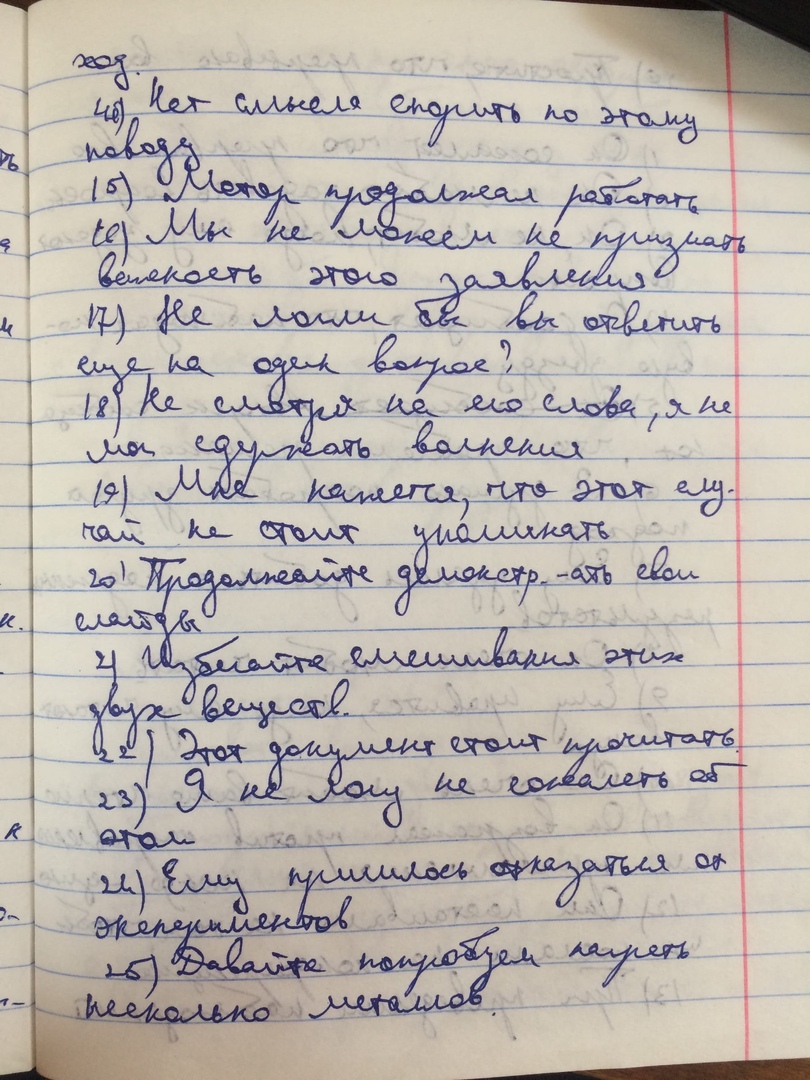 ход.
14) Нет смысла спорить по этому
поводу
15) Мотор продолжал работать
16) Мы не можем не признать
важность этого заявления
17) Не могли бы вы ответить
еще на один вопрос?
18) Не смотря на его слова, я не
мог сдержать волнения
19) Мне кажется, что этот слу-
чай не стоит упоминать
20) Продолжайте демонстр.-ать свои
слайды
21 Избегайте смешивания этих
двух веществ.
22) Этот документ стоит прочитать.
23) Я не могу не сожалеть об
этом
24) Ему пришлось отказаться от
экспериментов
25) Давайте попробуем нагреть
несколько металлов.